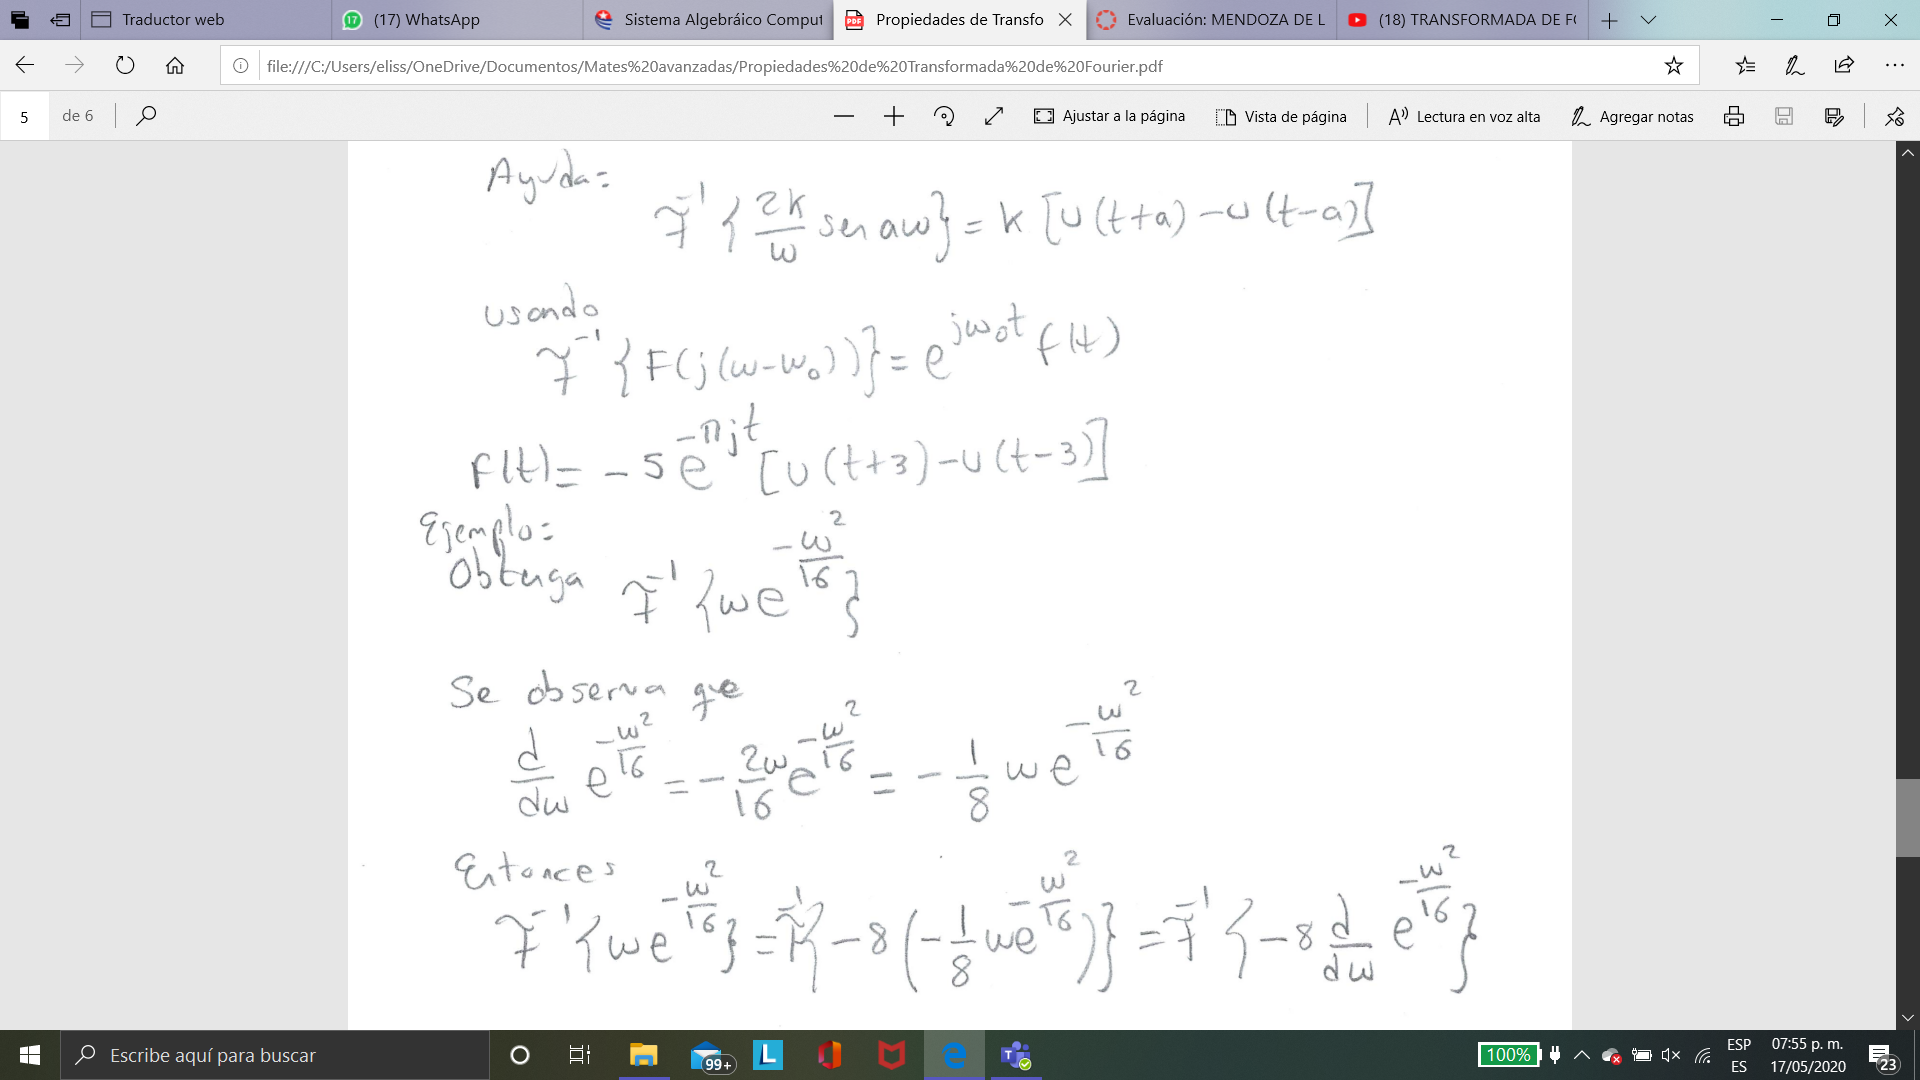 Traductor web
(17) WhatsApp
Sistema Algebráico Comput
Propiedades de Transfo
Evaluación: MENDOZA DE L
(18) TRANSFORMADA DE FO
file:///C:/Users/eliss/OneDrive/Documentos/Mates%20avanzadas/Propiedades%20de%20Transformada%20de%20Fourier.pdf
5 de 6
Ajustar a la página
Vista de página
Lectura en voz alta
Agregar notas
Ayuda:
ℱ⁻¹ {2k/ω sen aω} = k [u(t+a) - u(t-a)]
usando
ℱ⁻¹ {F(j(ω-ω₀))} = e^{jω₀t} f(t)
f(t) = -5 e^{-πjt} [u(t+3) - u(t-3)]
Ejemplo:
Obtenga ℱ⁻¹ {ω e^{-ω²/16}}
Se observa que
d/dω e^{-ω²/16} = - 2ω/16 e^{-ω²/16} = - 1/8 ω e^{-ω²/16}
Entonces
ℱ⁻¹ {ω e^{-ω²/16}} = ℱ⁻¹ {-8 (-1/8 ω e^{-ω²/16})} = ℱ⁻¹ {-8 d/dω e^{-ω²/16}}
Escribe aquí para buscar
99+
100%
ESP
ES
07:55 p. m.
17/05/2020
23